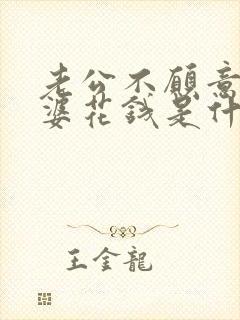 老公不愿意
婆花钱是什
王金龍